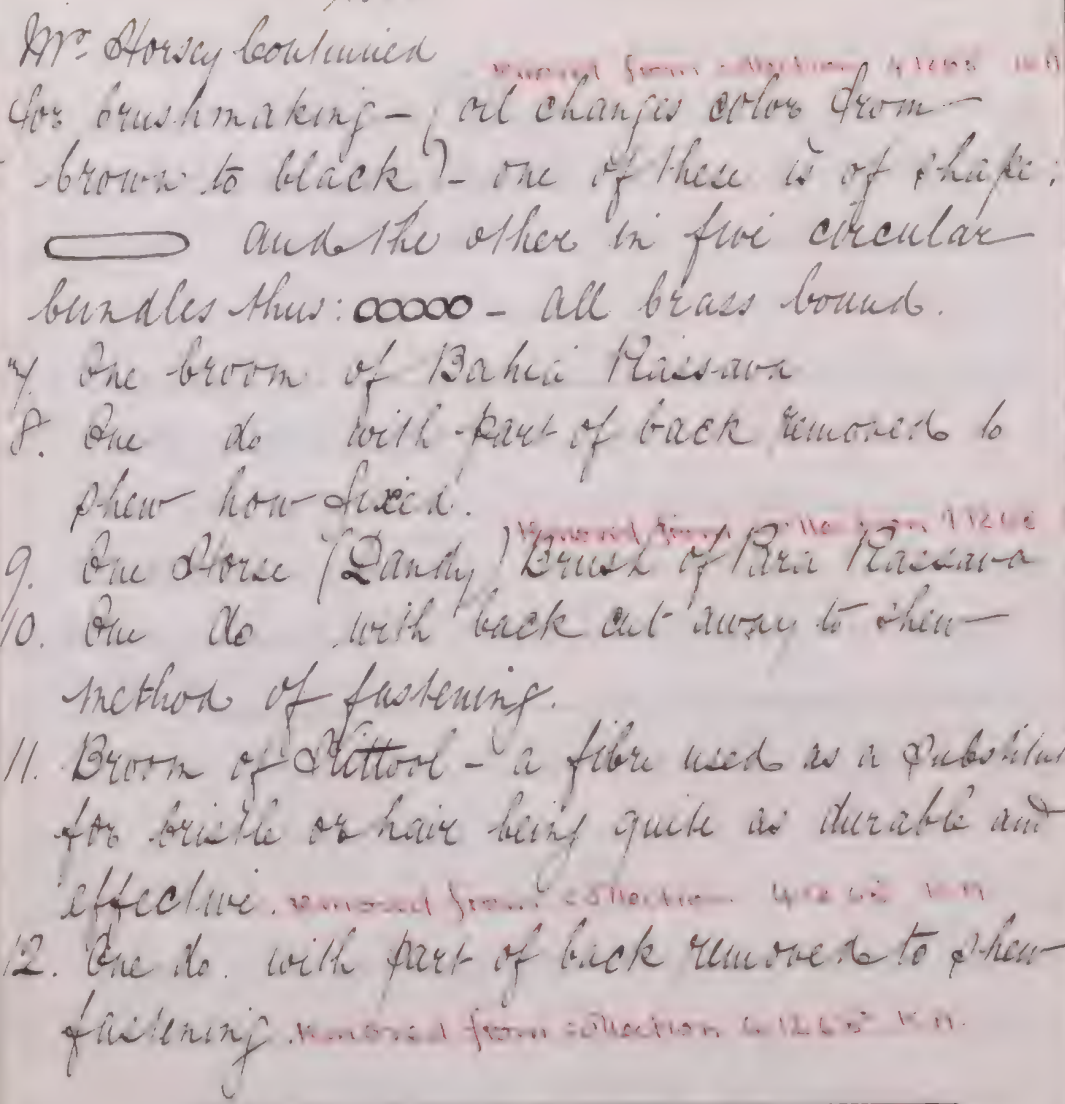 Mr. Horsey Continued
removed from collection
for brushmaking - (oil changes color from
brown to black) - one of these is of shape:
and the other in five circular
bundles thus: - all brass bound.
7. One broom of Bahia Piassava
8. One do with part of back removed to
shew how fixed.
removed from collection
9. One Horse (Dandy) Brush of Para Piassava
10. One do with back cut away to shew
method of fastening.
11. Broom of Kittool - a fibre used as a substitute
for bristle or hair being quite as durable and
effective. removed from collection
12. One do. with part of back removed to shew
fastening. removed from collection